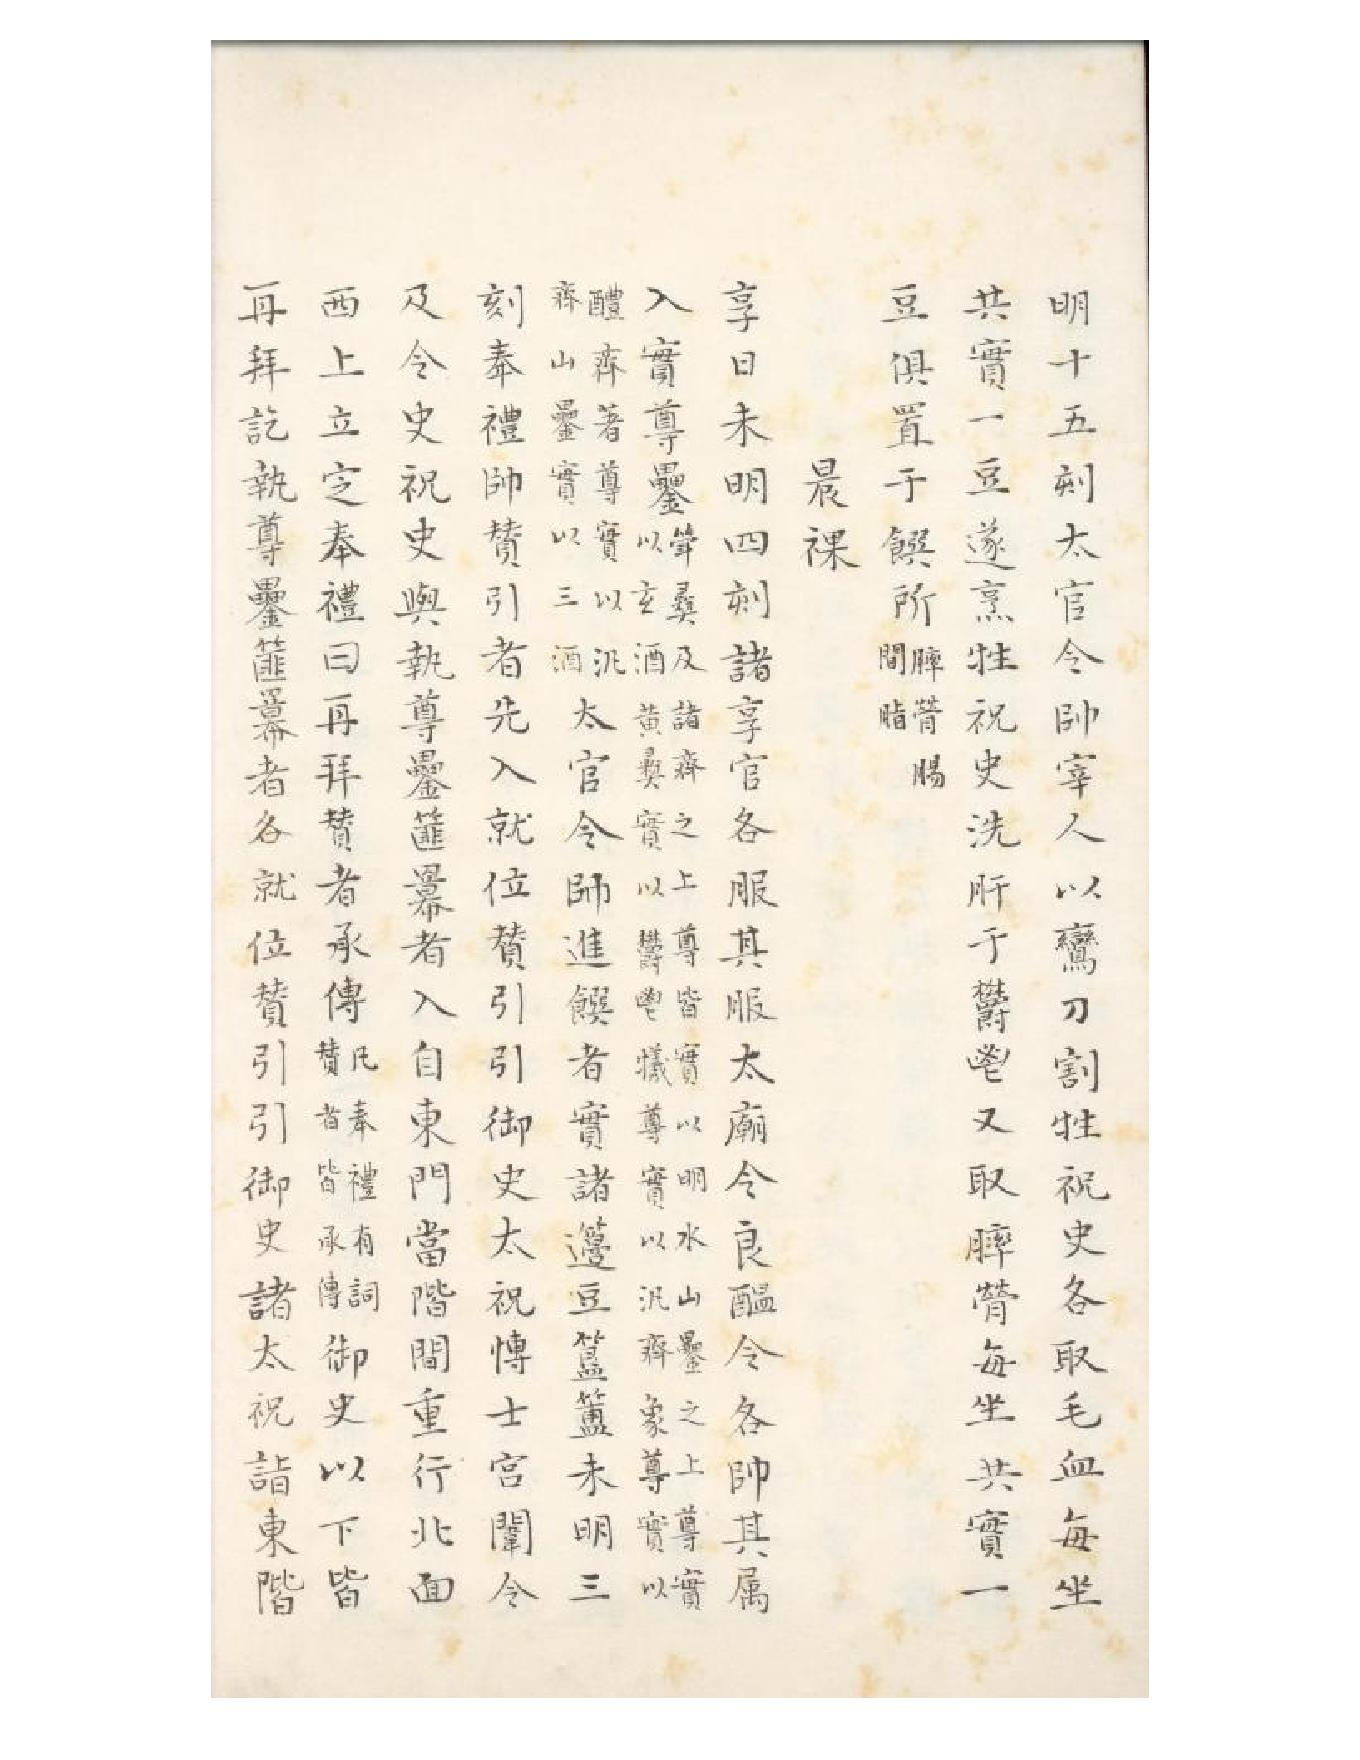 明十五刻太官令帥宰人以鸞刀割牲祝史各取毛血每坐
共實一豆遂烹牲祝史洗肝于鬱鬯又取膟膋每坐共實一
豆俱置于饌所膟膋腸
間脂
晨祼
享日未明四刻諸享官各服其服太廟令良醞令各帥其属
入實尊罍斝彝及諸齊之上尊皆實以明水山罍之上尊實
以玄酒黄彝實以鬱鬯犧尊實以汎齊象尊實以
醴齊著尊實以汎
齊山罍實以三酒太官令帥進饌者實諸籩豆簋簠未明三
刻奉禮帥贊引者先入就位贊引引御史太祝愽士宮闈令
及令史祝史與執尊罍篚冪者入自東門當階間重行北面
西上立定奉禮曰再拜贊者承傳凡奉禮有詞
贊者皆承傳御史以下皆
再拜訖執尊罍篚冪者各就位贊引引御史諸太祝詣東階